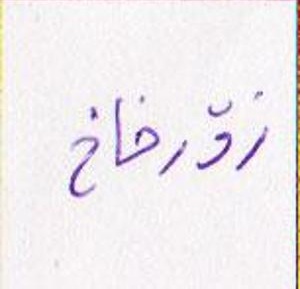 زوّرخاخ